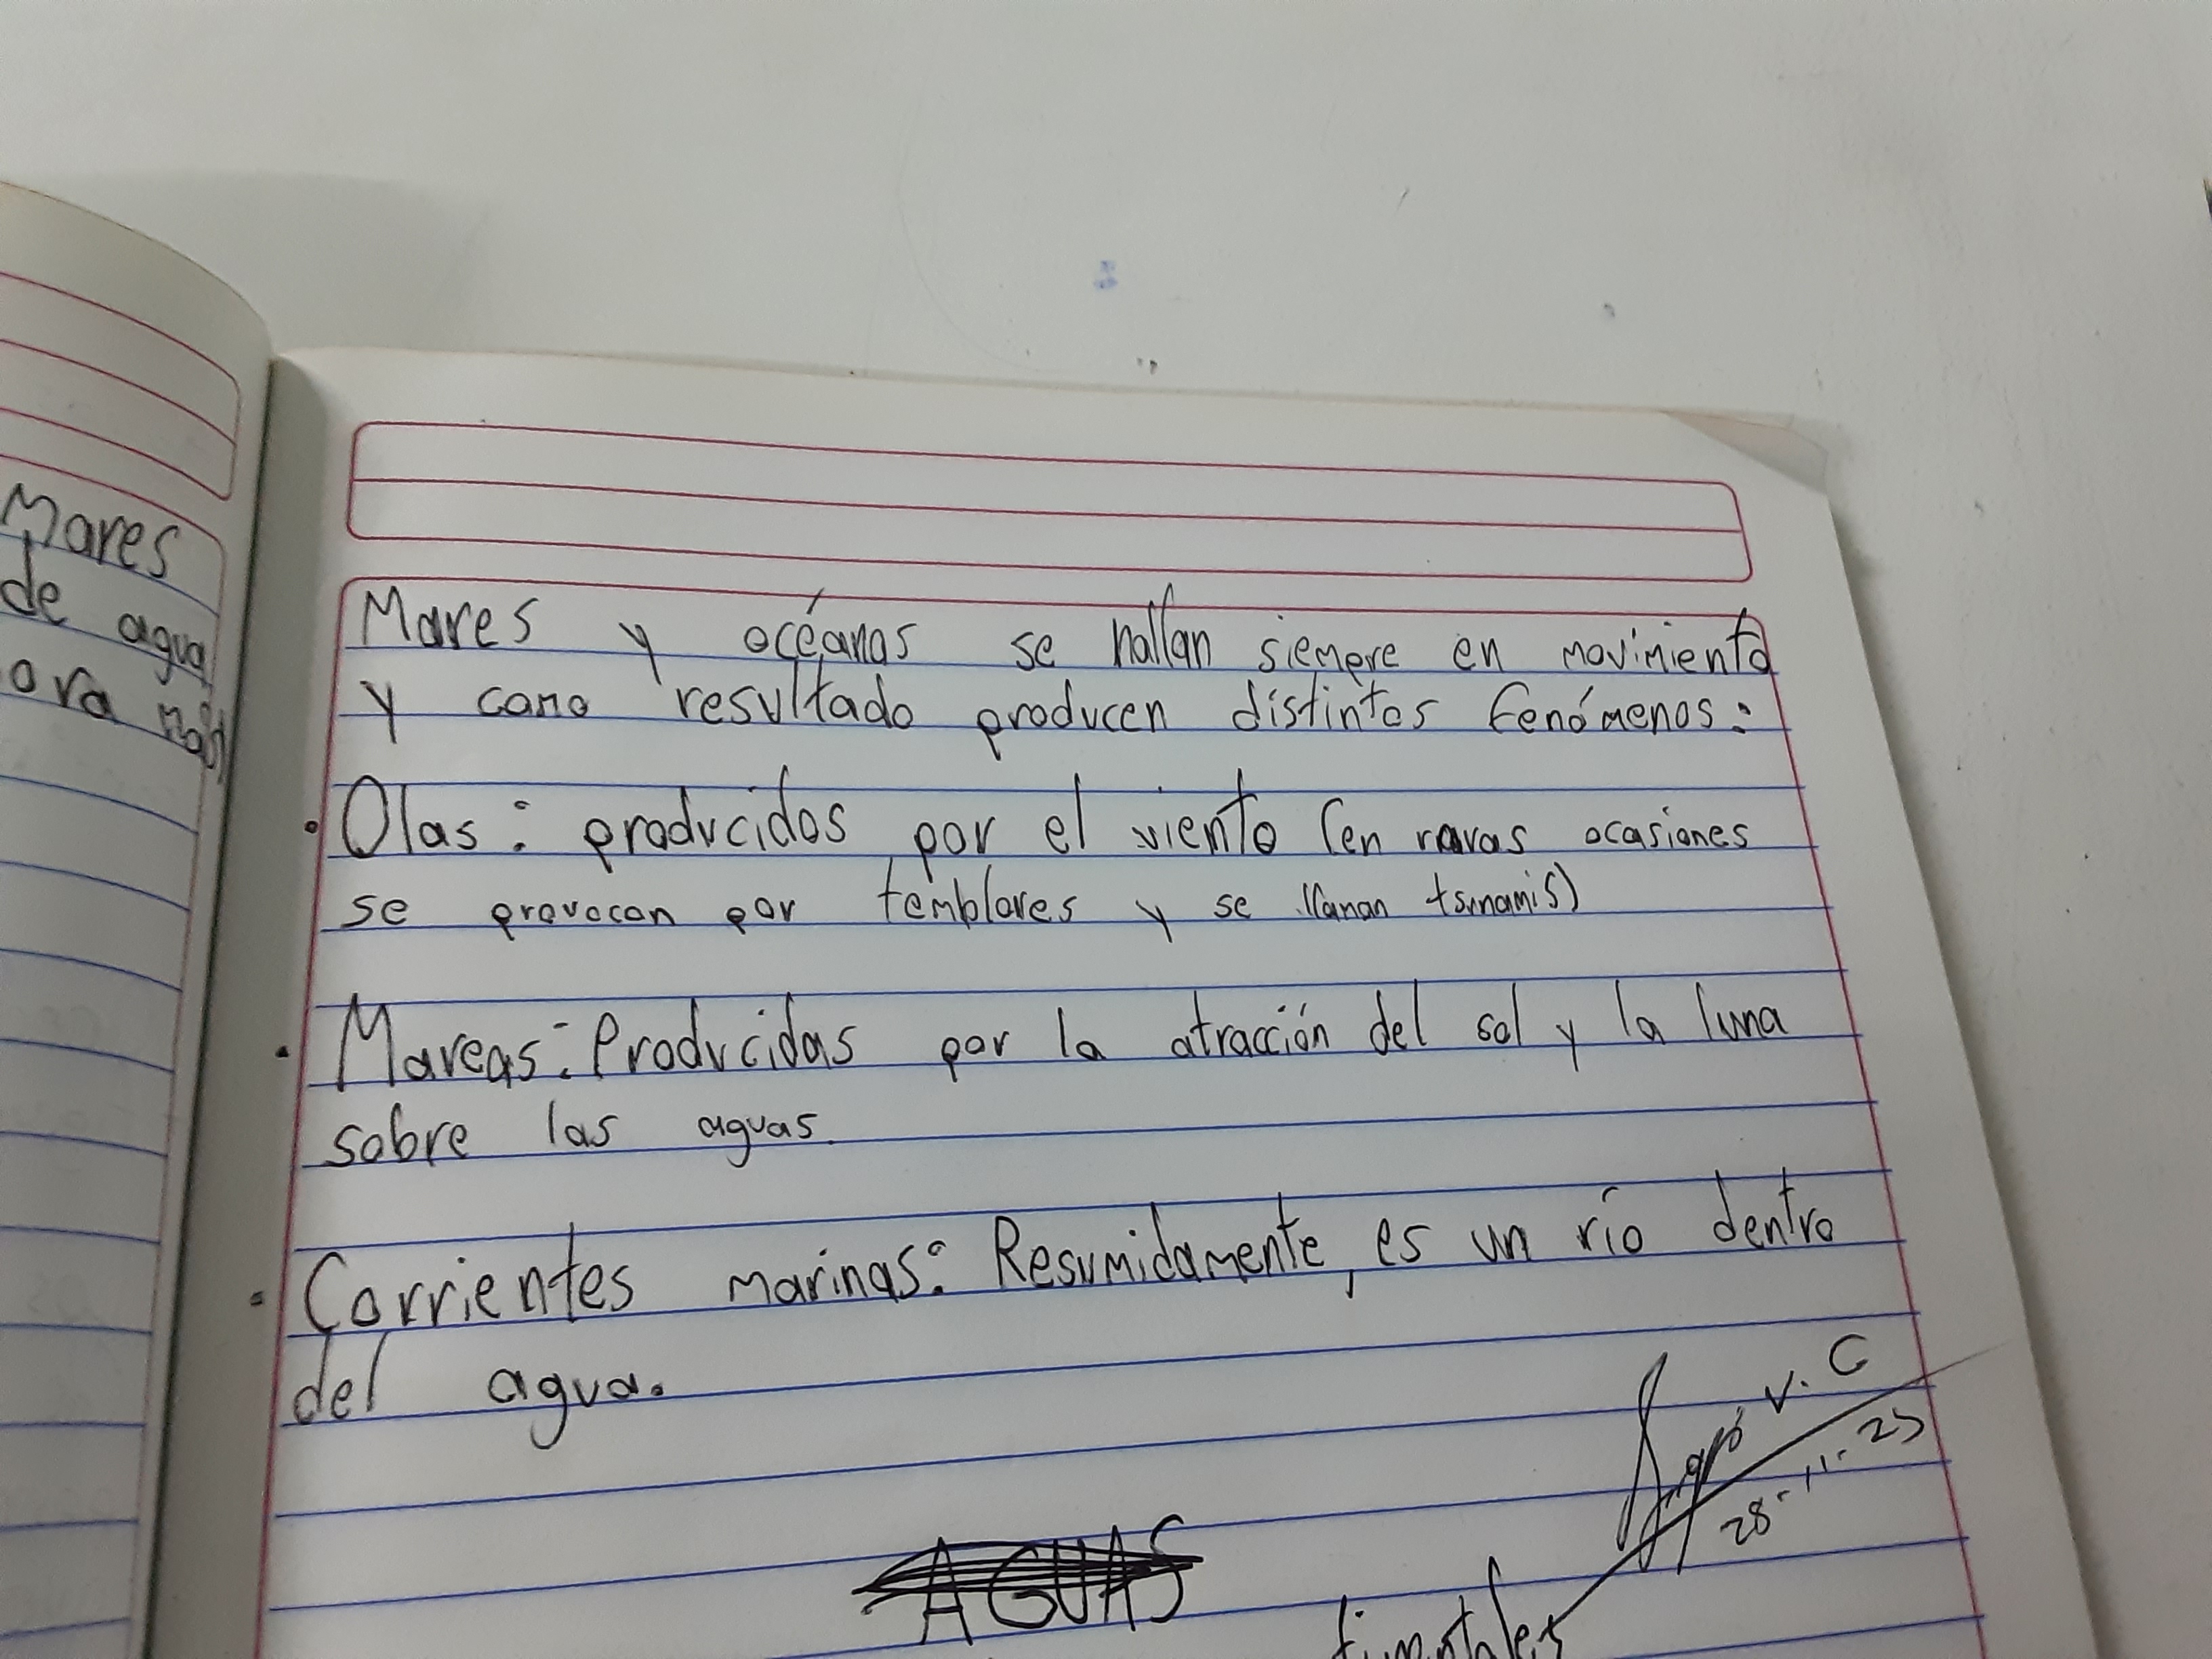 Mares
de agua
ora más
Mares y océanos se hallan siempre en movimiento
y como resultado producen distintos fenómenos:
• Olas: producidos por el viento (en raras ocasiones
se provocan por temblores y se llaman tsunamis)
• Mareas: Producidas por la atracción del sol y la luna
sobre las aguas.
• Corrientes marinas: Resumidamente, es un río dentro
del agua.
V. C
28-11-23
AGUAS